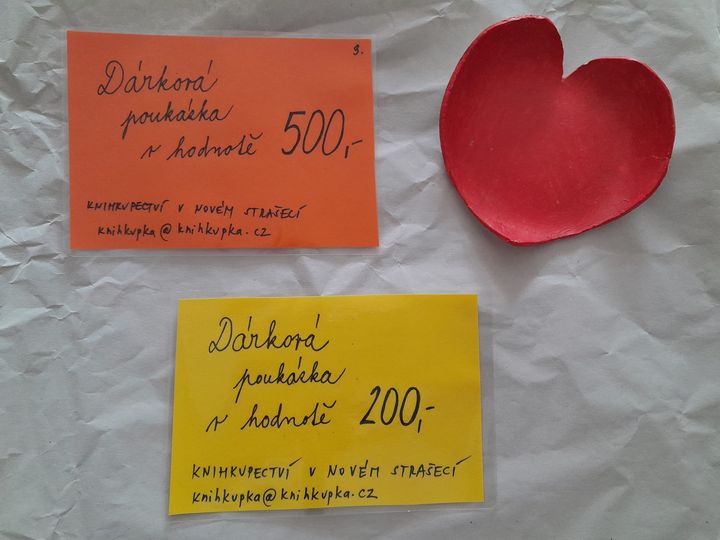 9.
Dárková
poukázka
v hodnotě 500,-
KNIHKUPECTVÍ V NOVÉM STRAŠECÍ
knihkupka@knihkupka.cz
Dárková
poukázka
v hodnotě 200,-
KNIHKUPECTVÍ V NOVÉM STRAŠECÍ
knihkupka@knihkupka.cz